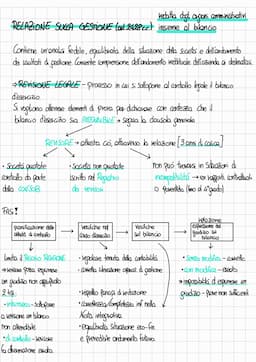 redatta dagli organi amministrativi
RELAZIONE SULLA GESTIONE (art. 2428 cc) insieme al bilancio
Contiene un'analisi fedele, equilibrata della situazione della società e dell'andamento
dei risultati di gestione. Consente comprensione dell'andamento reddituale dell'azienda
→ REVISIONE LEGALE - processo in cui si sottopone al controllo legale il bilancio
d'esercizio
S vogliono ottenere elementi di prova per dichiarare con certezza che il
bilancio d'esercizio sia → segua la clausola generale
REVISORE → attesta ciò, attraverso la relazione [3 anni di carica]
• Società quotate
controllo da parte
della CONSOB
• Società non quotate
iscritto nel Registro
dei revisori
non può trovarsi in situazioni di
incompatibilità → no rapporti contrattuali
o parentela (fino al 4° grado)
FASI:
pianificazione delle
attività di controllo
verifiche nel
corso esercizio
verifiche
sul bilancio
relazione
espressione del
giudizio sul
bilancio
Limita il Rischio REVISIONE
→ revisore possa esprimere
un giudizio non appropriato
2 tip.
• intrinseco
a revisore un bilancio
non attendibile
• di controllo - revisore
fa dichiarazione errata
• regolare tenuta della contabilità
• corretta rilevazione operaz. di gestione
• rispetto principi di redazione
• correttezza, completezza inf. nella
Nota integrativa
• equilibrata situazione eco-fin.
e prevedibile andamento futuro.
• Senza modifica - corretto
• con modifica - errato
→ impossibilità di esprimere un
giudizio - prove non sufficienti